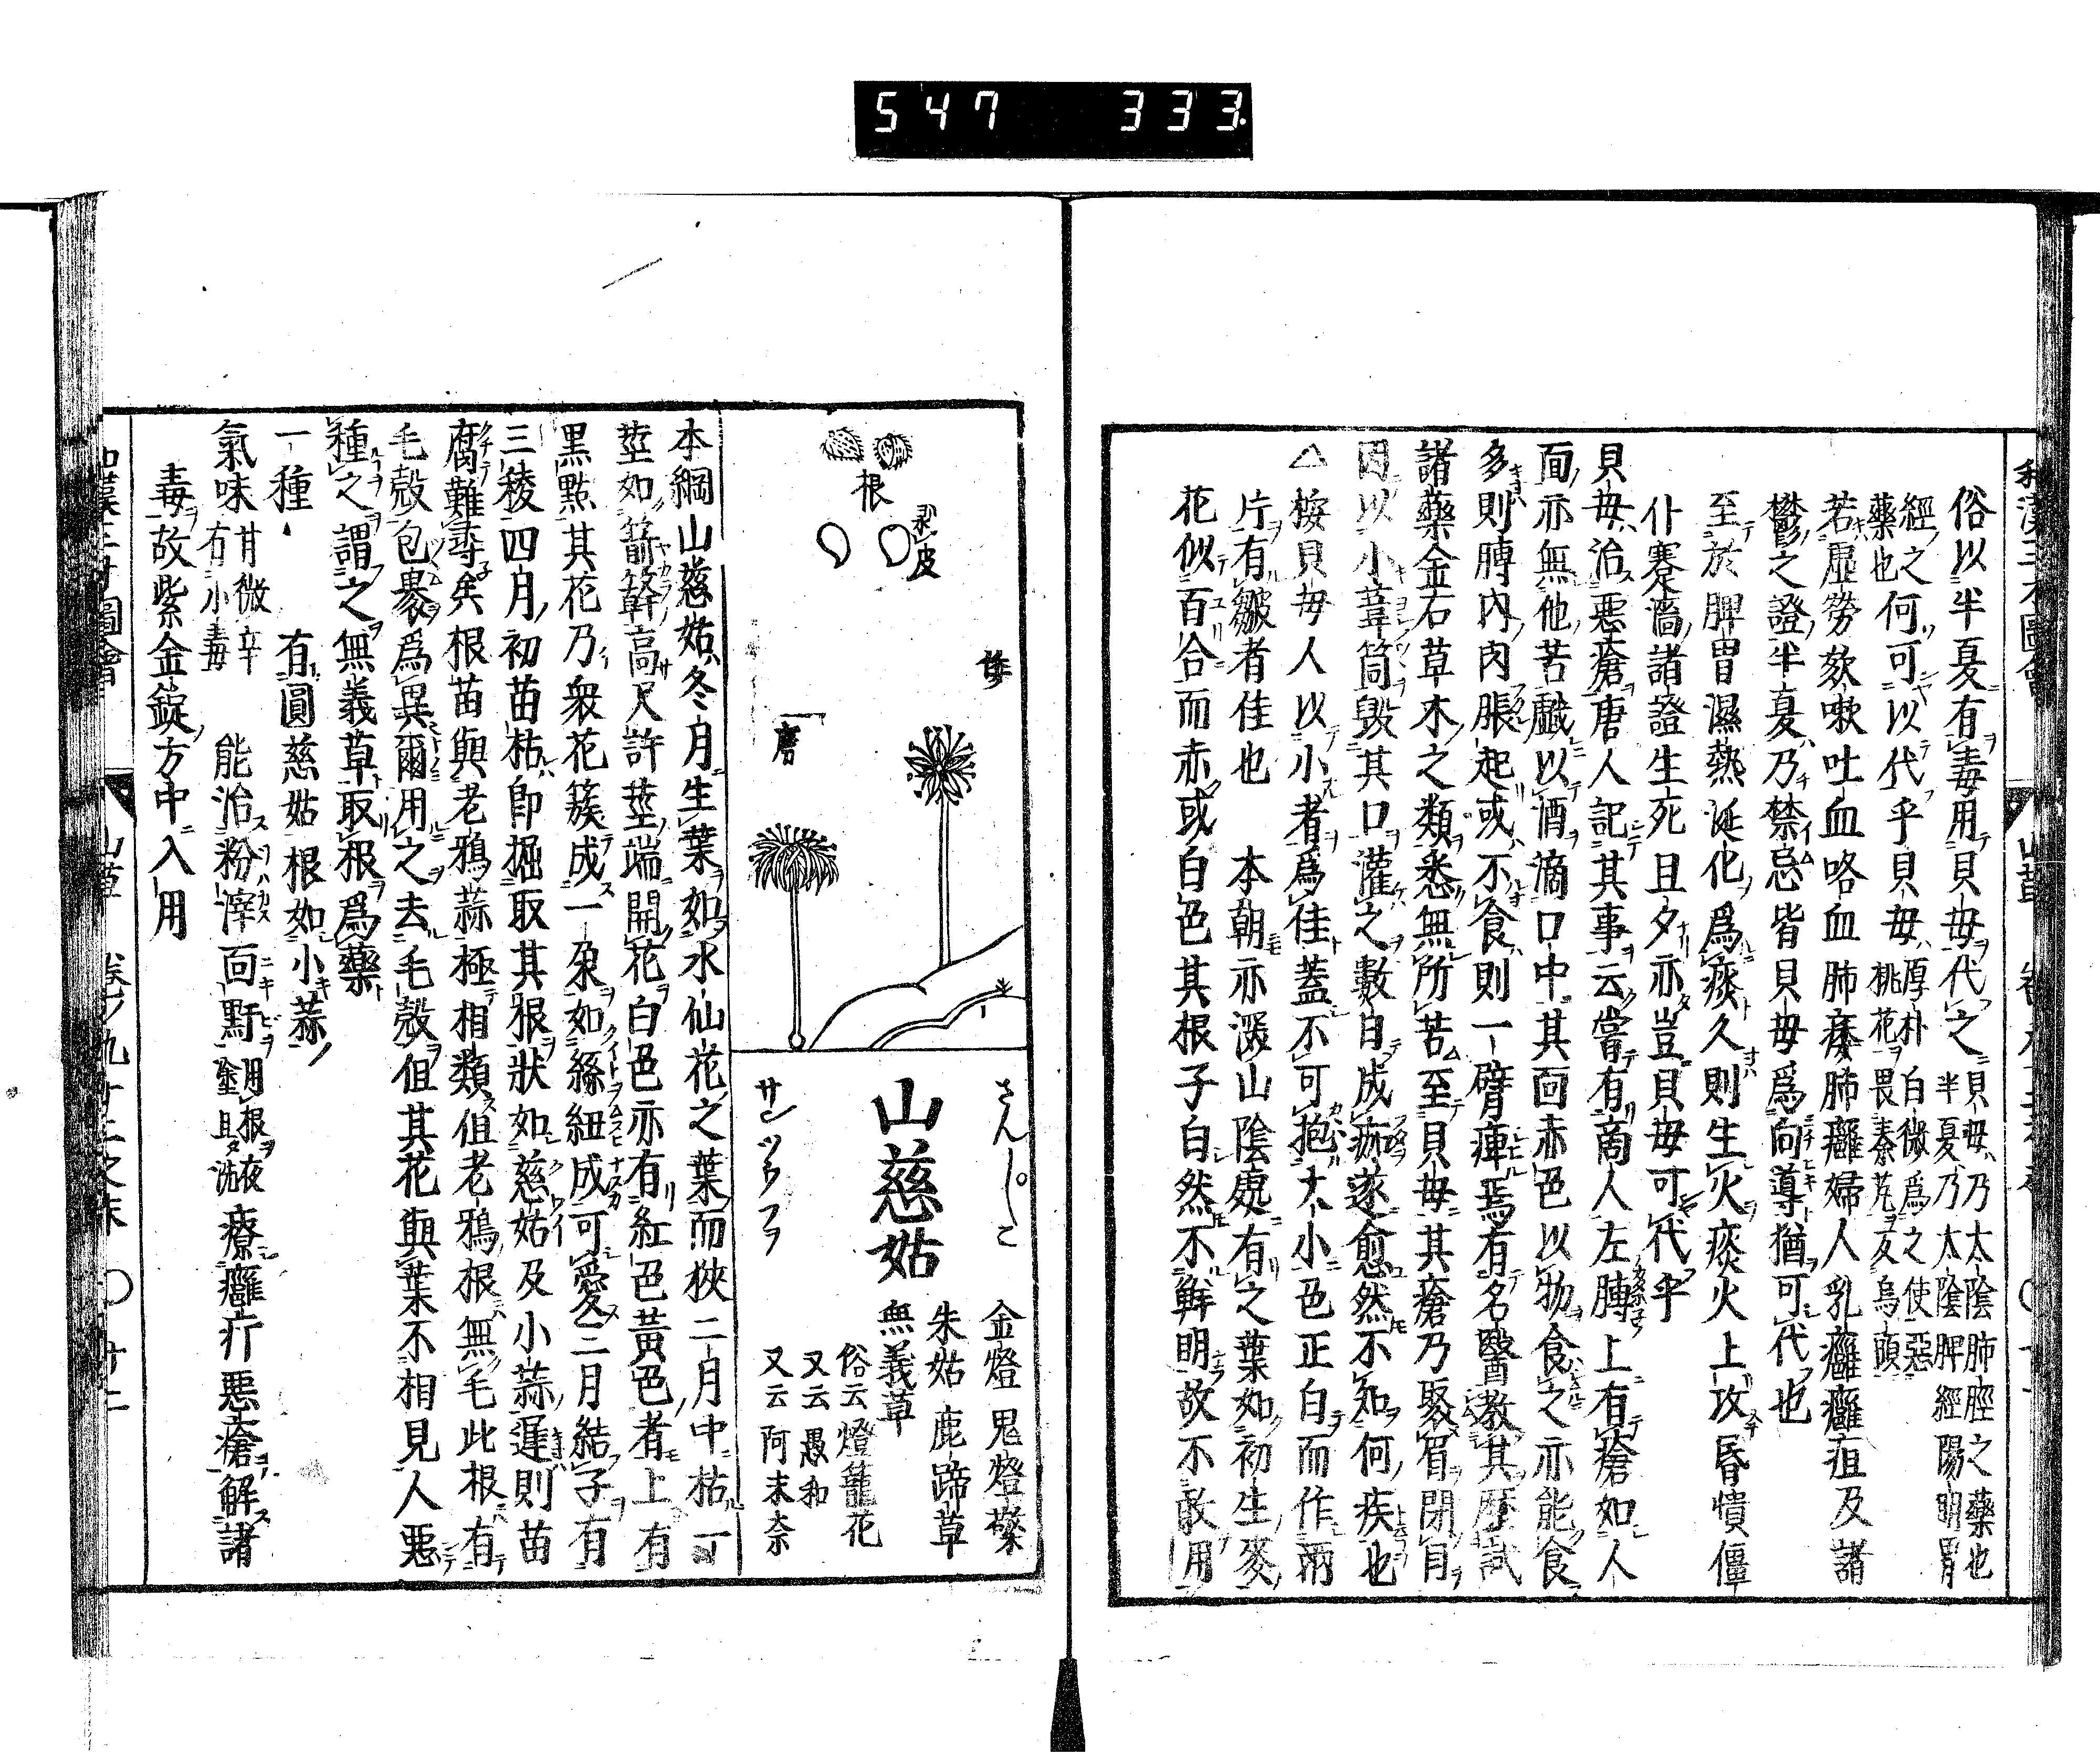 547 333.
俗以半夏有毒用貝母代之貝母乃太陰肺經之藥也
半夏乃太陰脾經陽明胃
經之藥也何可以代乎貝母厚朴白微爲之使惡
桃花畏秦艽及烏頭
若虛勞欬嗽吐血咯血肺痿肺癰婦人乳癰癰疽及諸
鬱之證半夏乃禁忌皆貝母爲向導猶可代也
至於脾胃濕熱涎化爲痰久則生火痰火上攻昏憒僵
仆蹇濇諸證生死且夕亦豈貝母可代乎
貝母治惡瘡唐人記其事云嘗有商人左膊上有瘡如人
面亦無他苦戲以酒滴口中其面赤色以物食之亦能食
多則膊內肉脹起或不食則一臂痺焉有名醫教其歷試
諸藥金石草木之類悉無所苦至貝母其瘡乃聚眉閉目
因以小葦筒毀其口灌之數日成痂遂愈然不知何疾也
△按貝母人以小者爲佳蓋不可抱大小色正白而作兩
片有皺者佳也 本朝亦深山陰處有之葉如初生麥
花似百合而赤或白色其根子白然不鮮明故不敢用
根
剥皮
山慈姑
さんじこ
サンツウクウ
金燈 鬼燈檠
朱姑 鹿蹄草
無義草
俗云燈籠花
又云愚和
又云阿末奈
本綱山慈姑冬月生葉如水仙花之葉而狹二月中枯一
莖如箭簳高尺許莖端開花白色亦有紅色黃色者上有
黑點其花乃衆花簇成一朶如絲紐成可愛三月結子有
三稜四月初苗枯卽掘取其根狀如慈姑及小蒜遲則苗
腐難尋矣根苗與老鴉蒜極相類但老鴉根無毛此根有
毛殼包裹爲異爾用之去毛殼但其花與葉不相見人惡
種之謂之無義草取根爲藥
一種 有圓慈姑根如小蒜
氣味甘微辛
有小毒 能治粉滓面䵟用根夜
塗旦洗療癰疔惡瘡解諸
毒故紫金錠方中入用